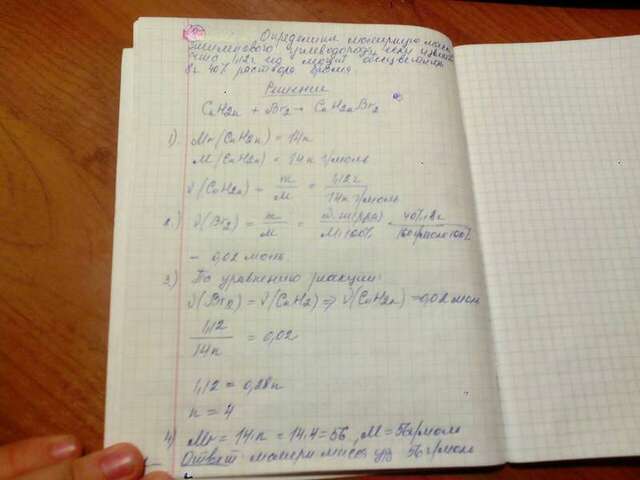 Определите молярную массу
этиленового углеводорода, если известно
что 1,12г его может обесцветить
8г 40% раствора брома.
Решение
CnH2n + Br2 → CnH2nBr2
1). Mr(CnH2n) = 14n
M(CnH2n) = 14n г/моль
ν(CnH2n) = m/M = 1,12г/14n г/моль
2.) ν(Br2) = m/M = ω·m(р-ра)/M·100% = 40%·8г/160г/моль·100%
= 0,02 моль
3.) По уравнению реакции:
ν(Br2) = ν(CnH2) => ν(CnH2n) = 0,02 моль
1,12/14n = 0,02
1,12 = 0,28n
n = 4
4) Mr = 14n = 14·4 = 56, M = 56г/моль
Ответ: масса 56 г/моль